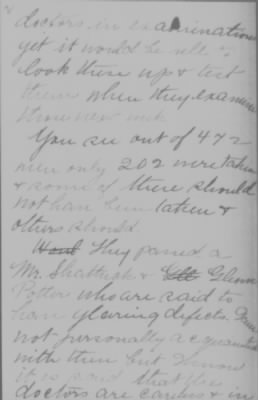 doctors in examinations
yet it would be well to
look these up & test
them when they examine
these new men
You see out of 472
men only 202 were taken
& some of these should
not have been taken &
others should.
They passed a
Mr. Shattuck & Glenn
Potter who are said to
have glaring defects. I am
not personally acquainted
with them but I know
it is said that the
doctors are careless & in